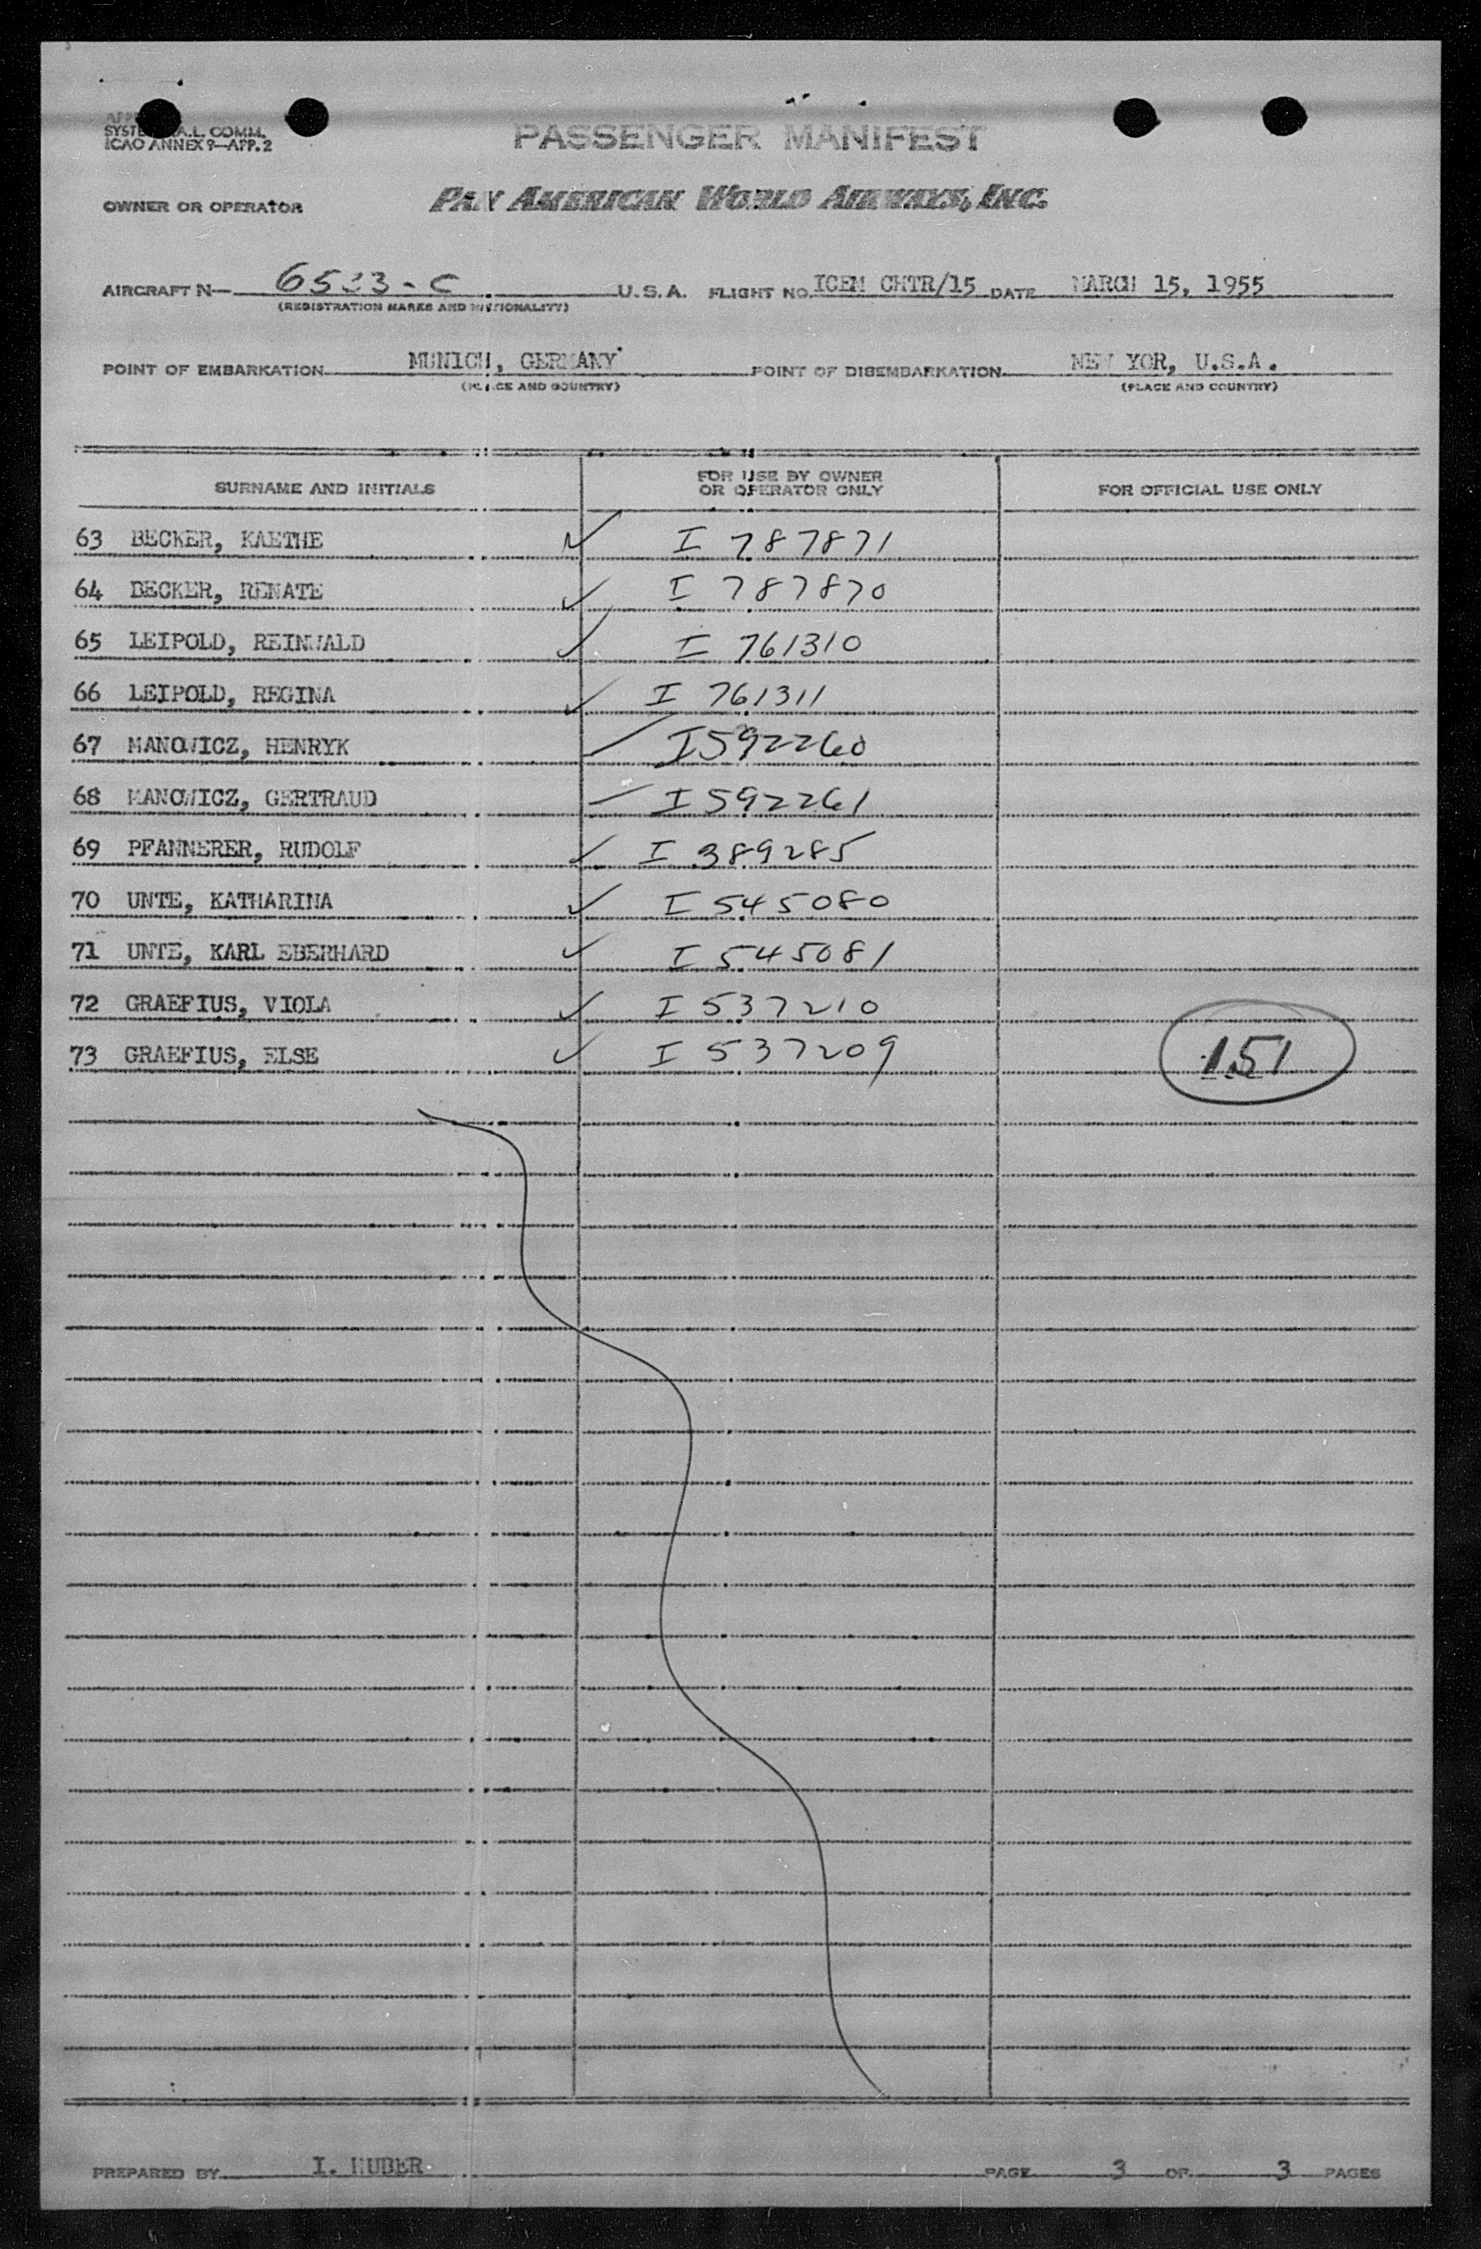 SYSTE A.L. COMM.
ICAO ANNEX 9—APP. 2
PASSENGER MANIFEST
OWNER OR OPERATOR PAN AMERICAN WORLD AIRWAYS, INC.
AIRCRAFT N— 6533-C U.S.A. FLIGHT NO. ICEM CHTR/15 DATE MARCH 15, 1955
(REGISTRATION MARKS AND NATIONALITY)
POINT OF EMBARKATION MUNICH, GERMANY POINT OF DISEMBARKATION NEW YOR, U.S.A.
(PLACE AND COUNTRY) (PLACE AND COUNTRY)
SURNAME AND INITIALS FOR USE BY OWNER OR OPERATOR ONLY FOR OFFICIAL USE ONLY
63 BECKER, KAETHE ✓ I 787871
64 BECKER, RENATE ✓ I 787870
65 LEIPOLD, REINWALD ✓ I 761310
66 LEIPOLD, REGINA ✓ I 761311
67 MANOWICZ, HENRYK I 592260
68 MANOWICZ, GERTRAUD I 592261
69 PFANNERER, RUDOLF ✓ I 389285
70 UNTE, KATHARINA ✓ I 545080
71 UNTE, KARL EBERHARD ✓ I 545081
72 GRAEFIUS, VIOLA ✓ I 537210
73 GRAEFIUS, ELSE ✓ I 537209
151
PREPARED BY I. HUBER PAGE 3 OF 3 PAGES